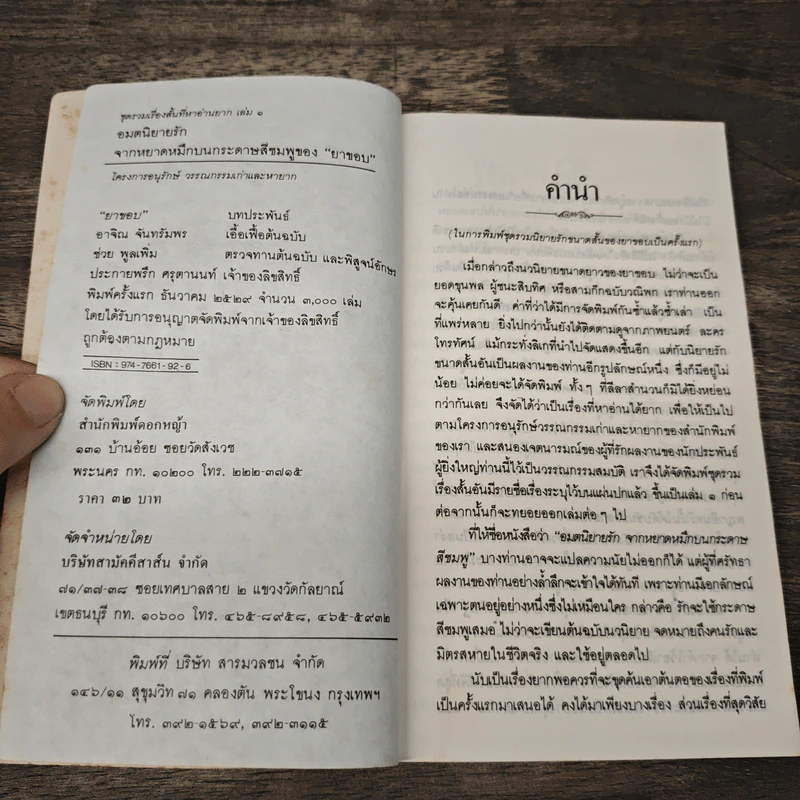 ชุดรวมเรื่องสั้นที่หาอ่านยาก เล่ม ๑
อมตนิยายรัก
จากหยาดหมึกบนกระดาษสีชมพูของ "ยาขอบ"
โครงการอนุรักษ์ วรรณกรรมเก่าและหายาก
"ยาขอบ" บทประพันธ์
อาจิณ จันทรัมพร เอื้อเฟื้อต้นฉบับ
ช่วย พูลเพิ่ม ตรวจทานต้นฉบับ และพิสูจน์อักษร
ประกายพรึก ศรุตานนท์ เจ้าของลิขสิทธิ์
พิมพ์ครั้งแรก ธันวาคม ๒๕๒๙ จำนวน ๓,๐๐๐ เล่ม
โดยได้รับการอนุญาตจัดพิมพ์จากเจ้าของลิขสิทธิ์
ถูกต้องตามกฎหมาย
ISBN : 974-7661-92-6
จัดพิมพ์โดย
สำนักพิมพ์ดอกหญ้า
๑๓๑ บ้านอ้อย ซอยวัดสังเวช
พระนคร กท. ๑๐๒๐๐ โทร. ๒๒๒-๓๗๑๕
ราคา ๓๒ บาท
จัดจำหน่ายโดย
บริษัทสามัคคีสาส์น จำกัด
๗๑/๓๗-๓๘ ซอยเทศบาลสาย ๒ แขวงวัดกัลยาณ์
เขตธนบุรี กท. ๑๐๖๐๐ โทร. ๔๖๕-๘๙๕๘, ๔๖๕-๕๙๓๒
พิมพ์ที่ บริษัท สารมวลชน จำกัด
๑๔๖/๑๑ สุขุมวิท ๗๑ คลองตัน พระโขนง กรุงเทพฯ
โทร. ๓๙๒-๑๕๖๙, ๓๙๒-๓๑๑๕
คำนำ
(ในการพิมพ์ชุดรวมนิยายรักขนาดสั้นของยาขอบเป็นครั้งแรก)
เมื่อกล่าวถึงนวนิยายขนาดยาวของยาขอบ ไม่ว่าจะเป็น
ยอดขุนพล ผู้ชนะสิบทิศ หรือสามก๊กฉบับวณิพก เราท่านออก
จะคุ้นเคยกันดี ค่าที่ว่าได้มีการจัดพิมพ์กันซ้ำแล้วซ้ำเล่า เป็น
ที่แพร่หลาย ยิ่งไปกว่านั้นยังได้ติดตามดูจากภาพยนตร์ ละคร
โทรทัศน์ แม้กระทั่งลิเกที่นำไปจัดแสดงขึ้นอีก แต่กับนิยายรัก
ขนาดสั้นอันเป็นผลงานของท่านอีกรูปลักษณ์หนึ่ง ซึ่งก็มีอยู่ไม่
น้อย ไม่ค่อยจะได้จัดพิมพ์ ทั้ง ๆ ที่ลีลาสำนวนก็มิได้ยิ่งหย่อน
กว่ากันเลย จึงจัดได้ว่าเป็นเรื่องที่หาอ่านได้ยาก เพื่อให้เป็นไป
ตามโครงการอนุรักษ์วรรณกรรมเก่าและหายากของสำนักพิมพ์
ของเรา และสนองเจตนารมณ์ของผู้ที่รักผลงานของนักประพันธ์
ผู้ยิ่งใหญ่ท่านนี้ไว้เป็นวรรณกรรมสมบัติ เราจึงได้จัดพิมพ์ชุดรวม
เรื่องสั้นอันมีรายชื่อเรื่องระบุไว้บนแผ่นปกแล้ว ขึ้นเป็นเล่ม ๑ ก่อน
ต่อจากนั้นก็จะทยอยออกเล่มต่อ ๆ ไป
ที่ให้ชื่อหนังสือว่า "อมตนิยายรัก จากหยาดหมึกบนกระดาษ
สีชมพู" บางท่านอาจจะแปลความนัยไม่ออกก็ได้ แต่ผู้ที่ศรัทธา
ผลงานของท่านอย่างล้ำลึกจะเข้าใจได้ทันที เพราะท่านมีเอกลักษณ์
เฉพาะตนอยู่อย่างหนึ่งซึ่งไม่เหมือนใคร กล่าวคือ รักจะใช้กระดาษ
สีชมพูเสมอ ไม่ว่าจะเขียนต้นฉบับนวนิยาย จดหมายถึงคนรักและ
มิตรสหายในชีวิตจริง และใช้อยู่ตลอดไป
นับเป็นเรื่องยากพอควรที่จะขุดค้นเอาต้นตอของเรื่องที่พิมพ์
เป็นครั้งแรกมาเสนอได้ คงได้มาเพียงบางเรื่อง ส่วนเรื่องที่สุดวิสัย